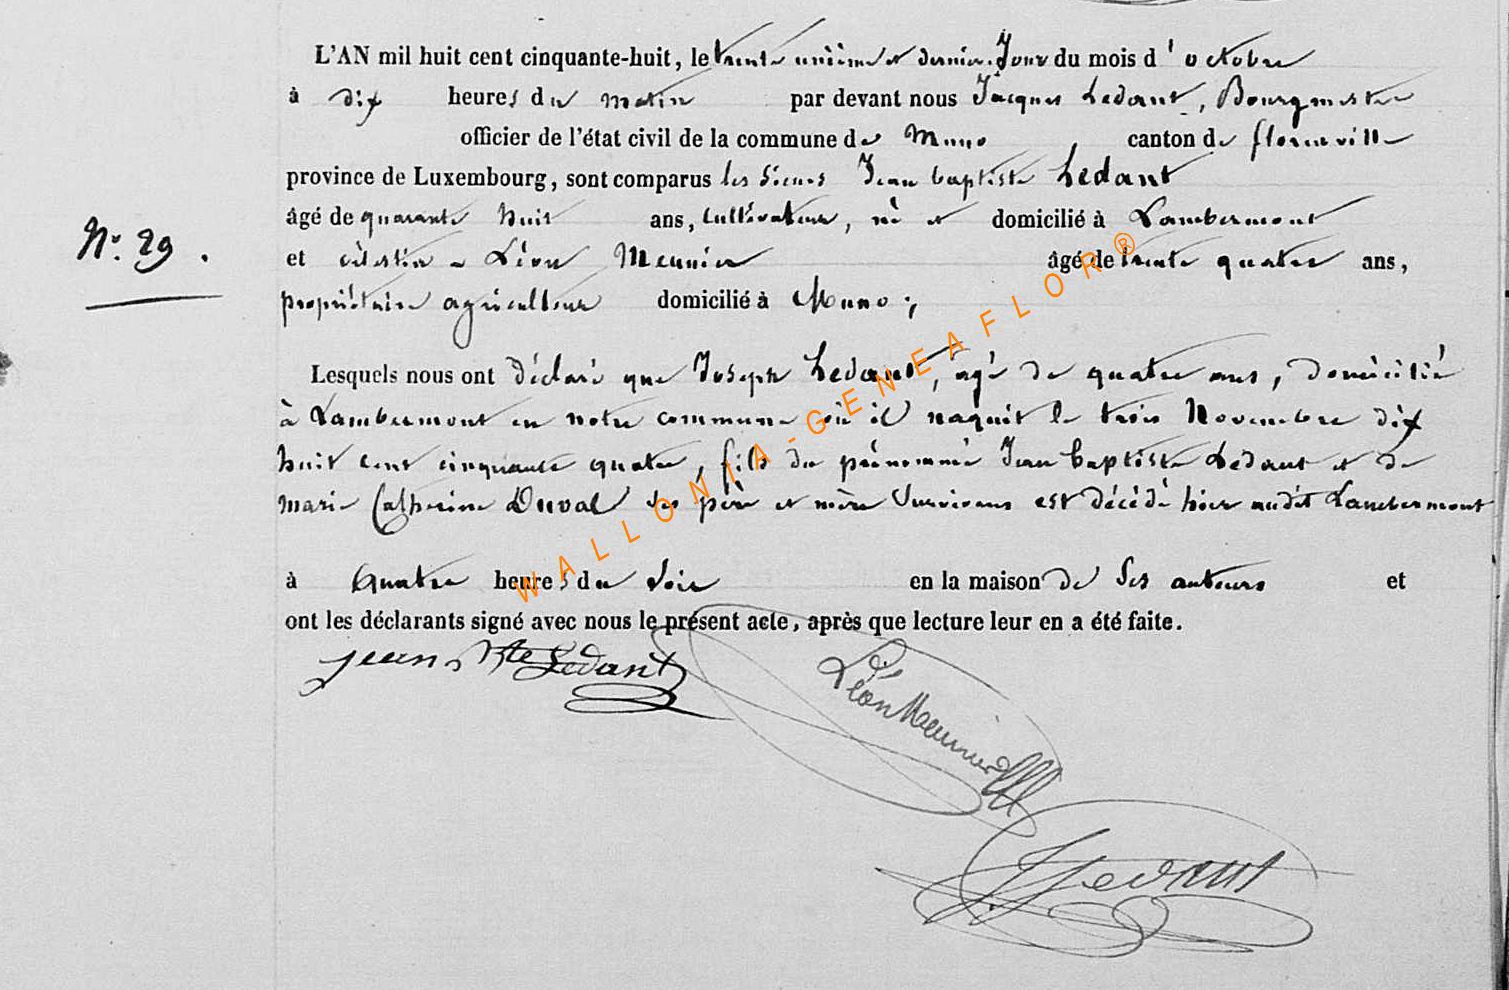 L'AN mil huit cent cinquante-huit, le trente unième et dernier Jour du mois d'octobre
à dix heures du matin par devant nous Jacques Ledant, Bourgmestre
officier de l'état civil de la commune de Muno, canton de florenville
province de Luxembourg, sont comparus les sieurs Jean baptiste Ledant
âgé de quarante huit ans, cultivateur, né et domicilié à Lambermont
N° 29.
et célestin - Léon Meunier âgé de trente quatre ans,
propriétaire agriculteur domicilié à Muno ;
Lesquels nous ont déclaré que Joseph Ledant, âgé de quatre ans, domicilié
à Lambermont en notre commune où il naquit le trois Novembre dix
huit cent cinquante quatre, fils du prénommé Jean baptiste Ledant et de
marie Catherine Duval ses père et mère survivans est décédé hier audit Lambermont
à quatre heures du soir en la maison de ses auteurs et
ont les déclarants signé avec nous le présent acte, après que lecture leur en a été faite.
jean Bte Ledant
Léon Meunier
J Ledant
WALLONIA-GENEAFLOR®